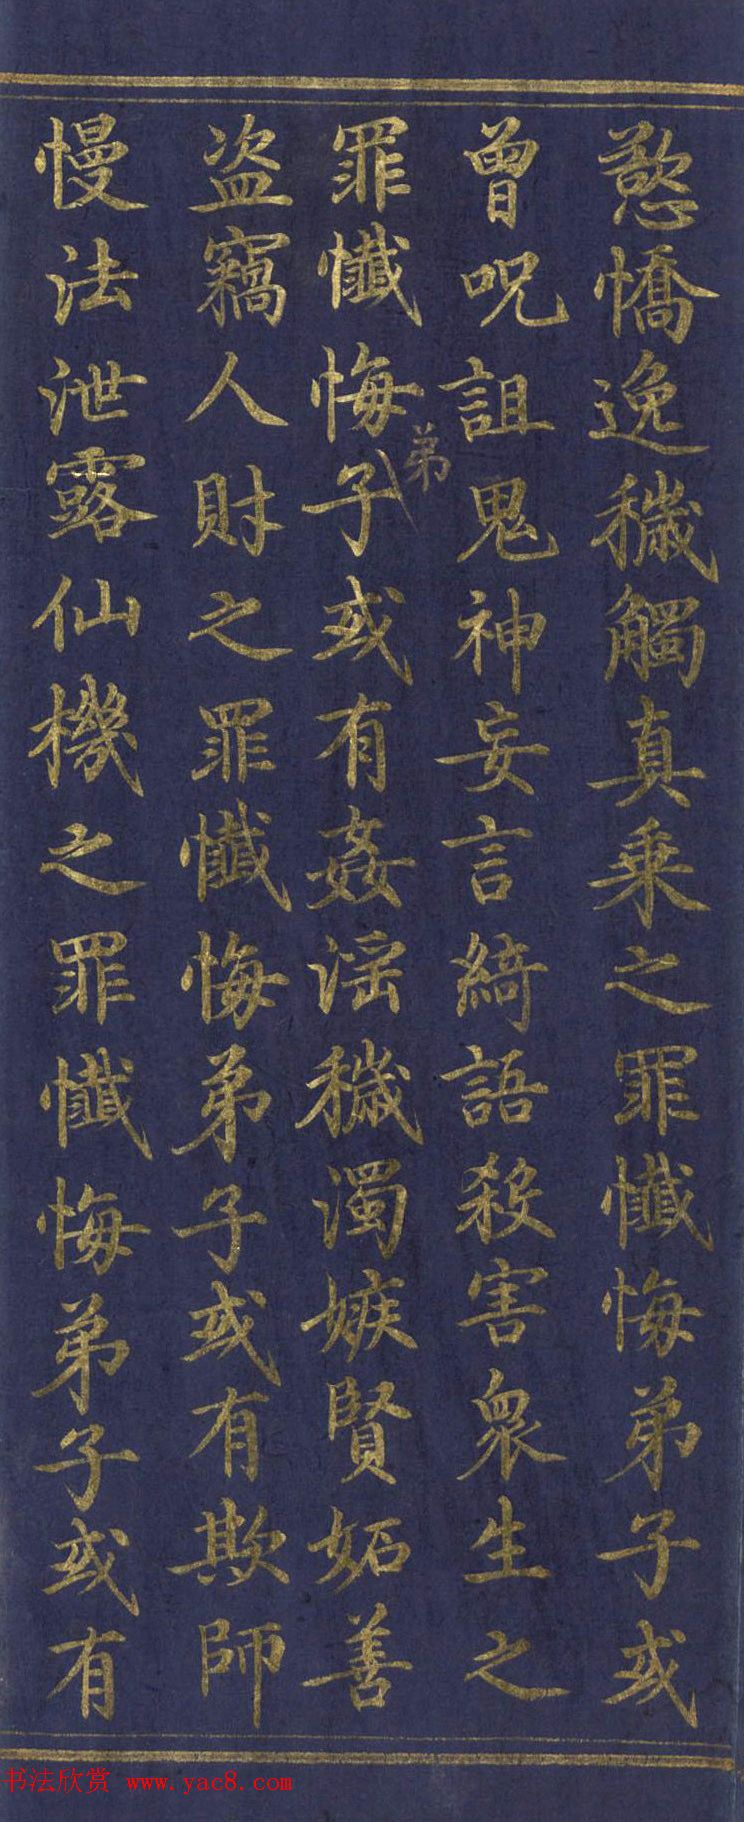 慾憍逸穢觸真乗之罪懺悔弟子或
曾呪詛鬼神妄言綺語殺害衆生之
罪懺悔弟子或有姦淫穢濁嫉賢妬善
盗竊人財之罪懺悔弟子或有欺師
慢法泄露仙機之罪懺悔弟子或有
书法欣赏 www.yac8.com